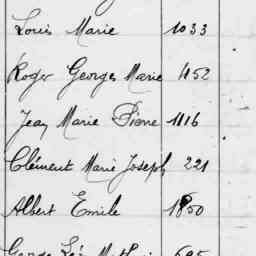 Louis Marie 1033
Roger Georges Marie 1152
Jean Marie Pierre 1116
Clément Marie Joseph 221
Albert Emile 1850
695